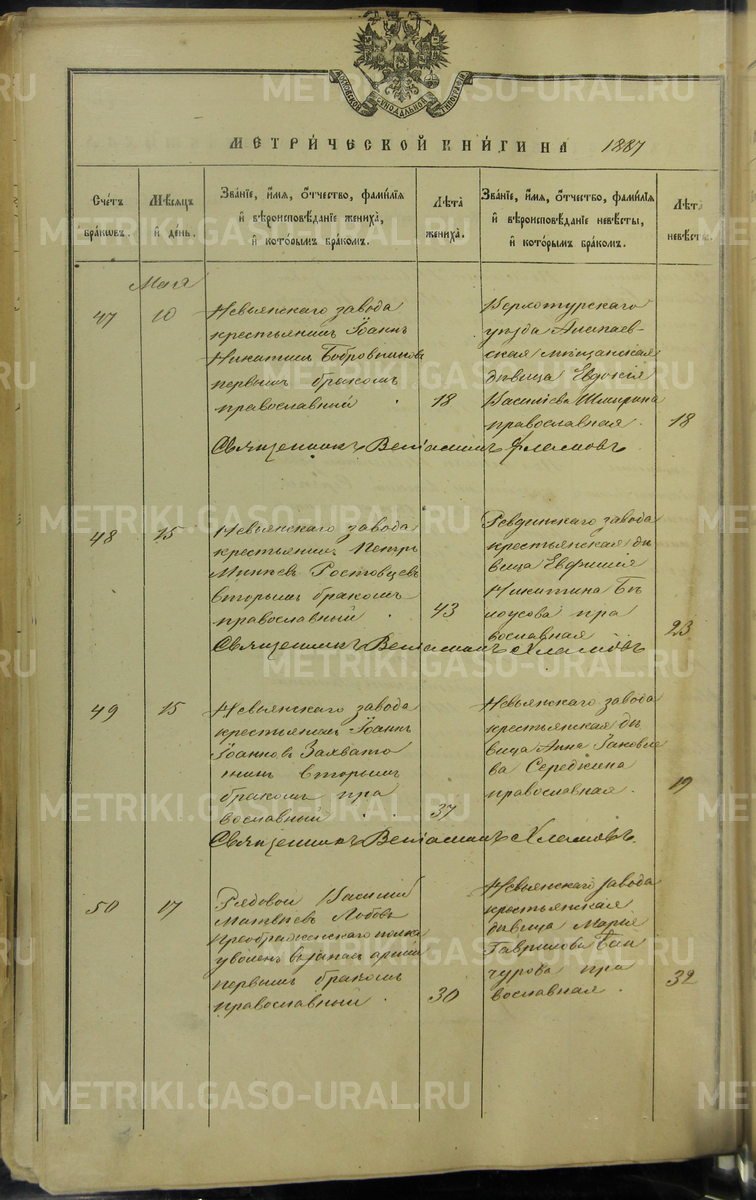 МОСКОВСКОЙ СѴНОДАЛЬНОЙ ТИПОГРАФІИ
МЕТРИ́ЧЕСКОЙ КНИ́ГИ НА 1887
Сче́тъ бра́кѡвъ.
Мѣ́сяцъ и҆ де́нь.
Зва́нїе, и҆́мя, ѻ҆́тчество, фами́лїя и҆ вѣроисповѣ́данїе жениха̀, и҆ кото́рымъ бра́комъ.
Лѣ́та жениха̀.
Зва́нїе, и҆́мя, ѻ҆́тчество, фами́лїя и҆ вѣроисповѣ́данїе невѣ́сты, и҆ кото́рымъ бра́комъ.
Лѣ́та невѣ́сты.
Мая
47
10
Невьянскаго завода
крестьянинъ Іоаннъ
Никитинъ Бобровниковъ
первымъ бракомъ
православный
18
Верхотурскаго
уѣзда Алапаев-
ская мѣщанская
дѣвица Евдокія
Василіева
православная
18
Священникъ Веніаминъ Хламовъ
48
15
Невьянскаго завода
крестьянинъ Петръ
Минѣевъ Ростовцевъ
вторымъ бракомъ
православный
43
Ревдинскаго завода
крестьянская дѣ
вица Евфимія
Никитина Бѣ
лоусова пра
вославная
23
Священникъ Веніаминъ Хламовъ
49
15
Невьянскаго завода
крестьянинъ Іоаннъ
Іоанновъ Захвато
нинъ вторымъ
бракомъ пра
вославный
37
Невьянскаго завода
крестьянская дѣ
вица Анна Іаковле
ва Середкина
православная
19
Священникъ Веніаминъ Хламовъ.
50
17
Рядовой Василій
Матвѣевъ Лобовъ
Преображенскаго полка
уволенъ въ запасъ арміи
первымъ бракомъ
православный
30
Невьянскаго завода
крестьянская
дѣвица Марія
Гаврилова
чурова пра
вославная.
32
METRIKI.GASO-URAL.RU